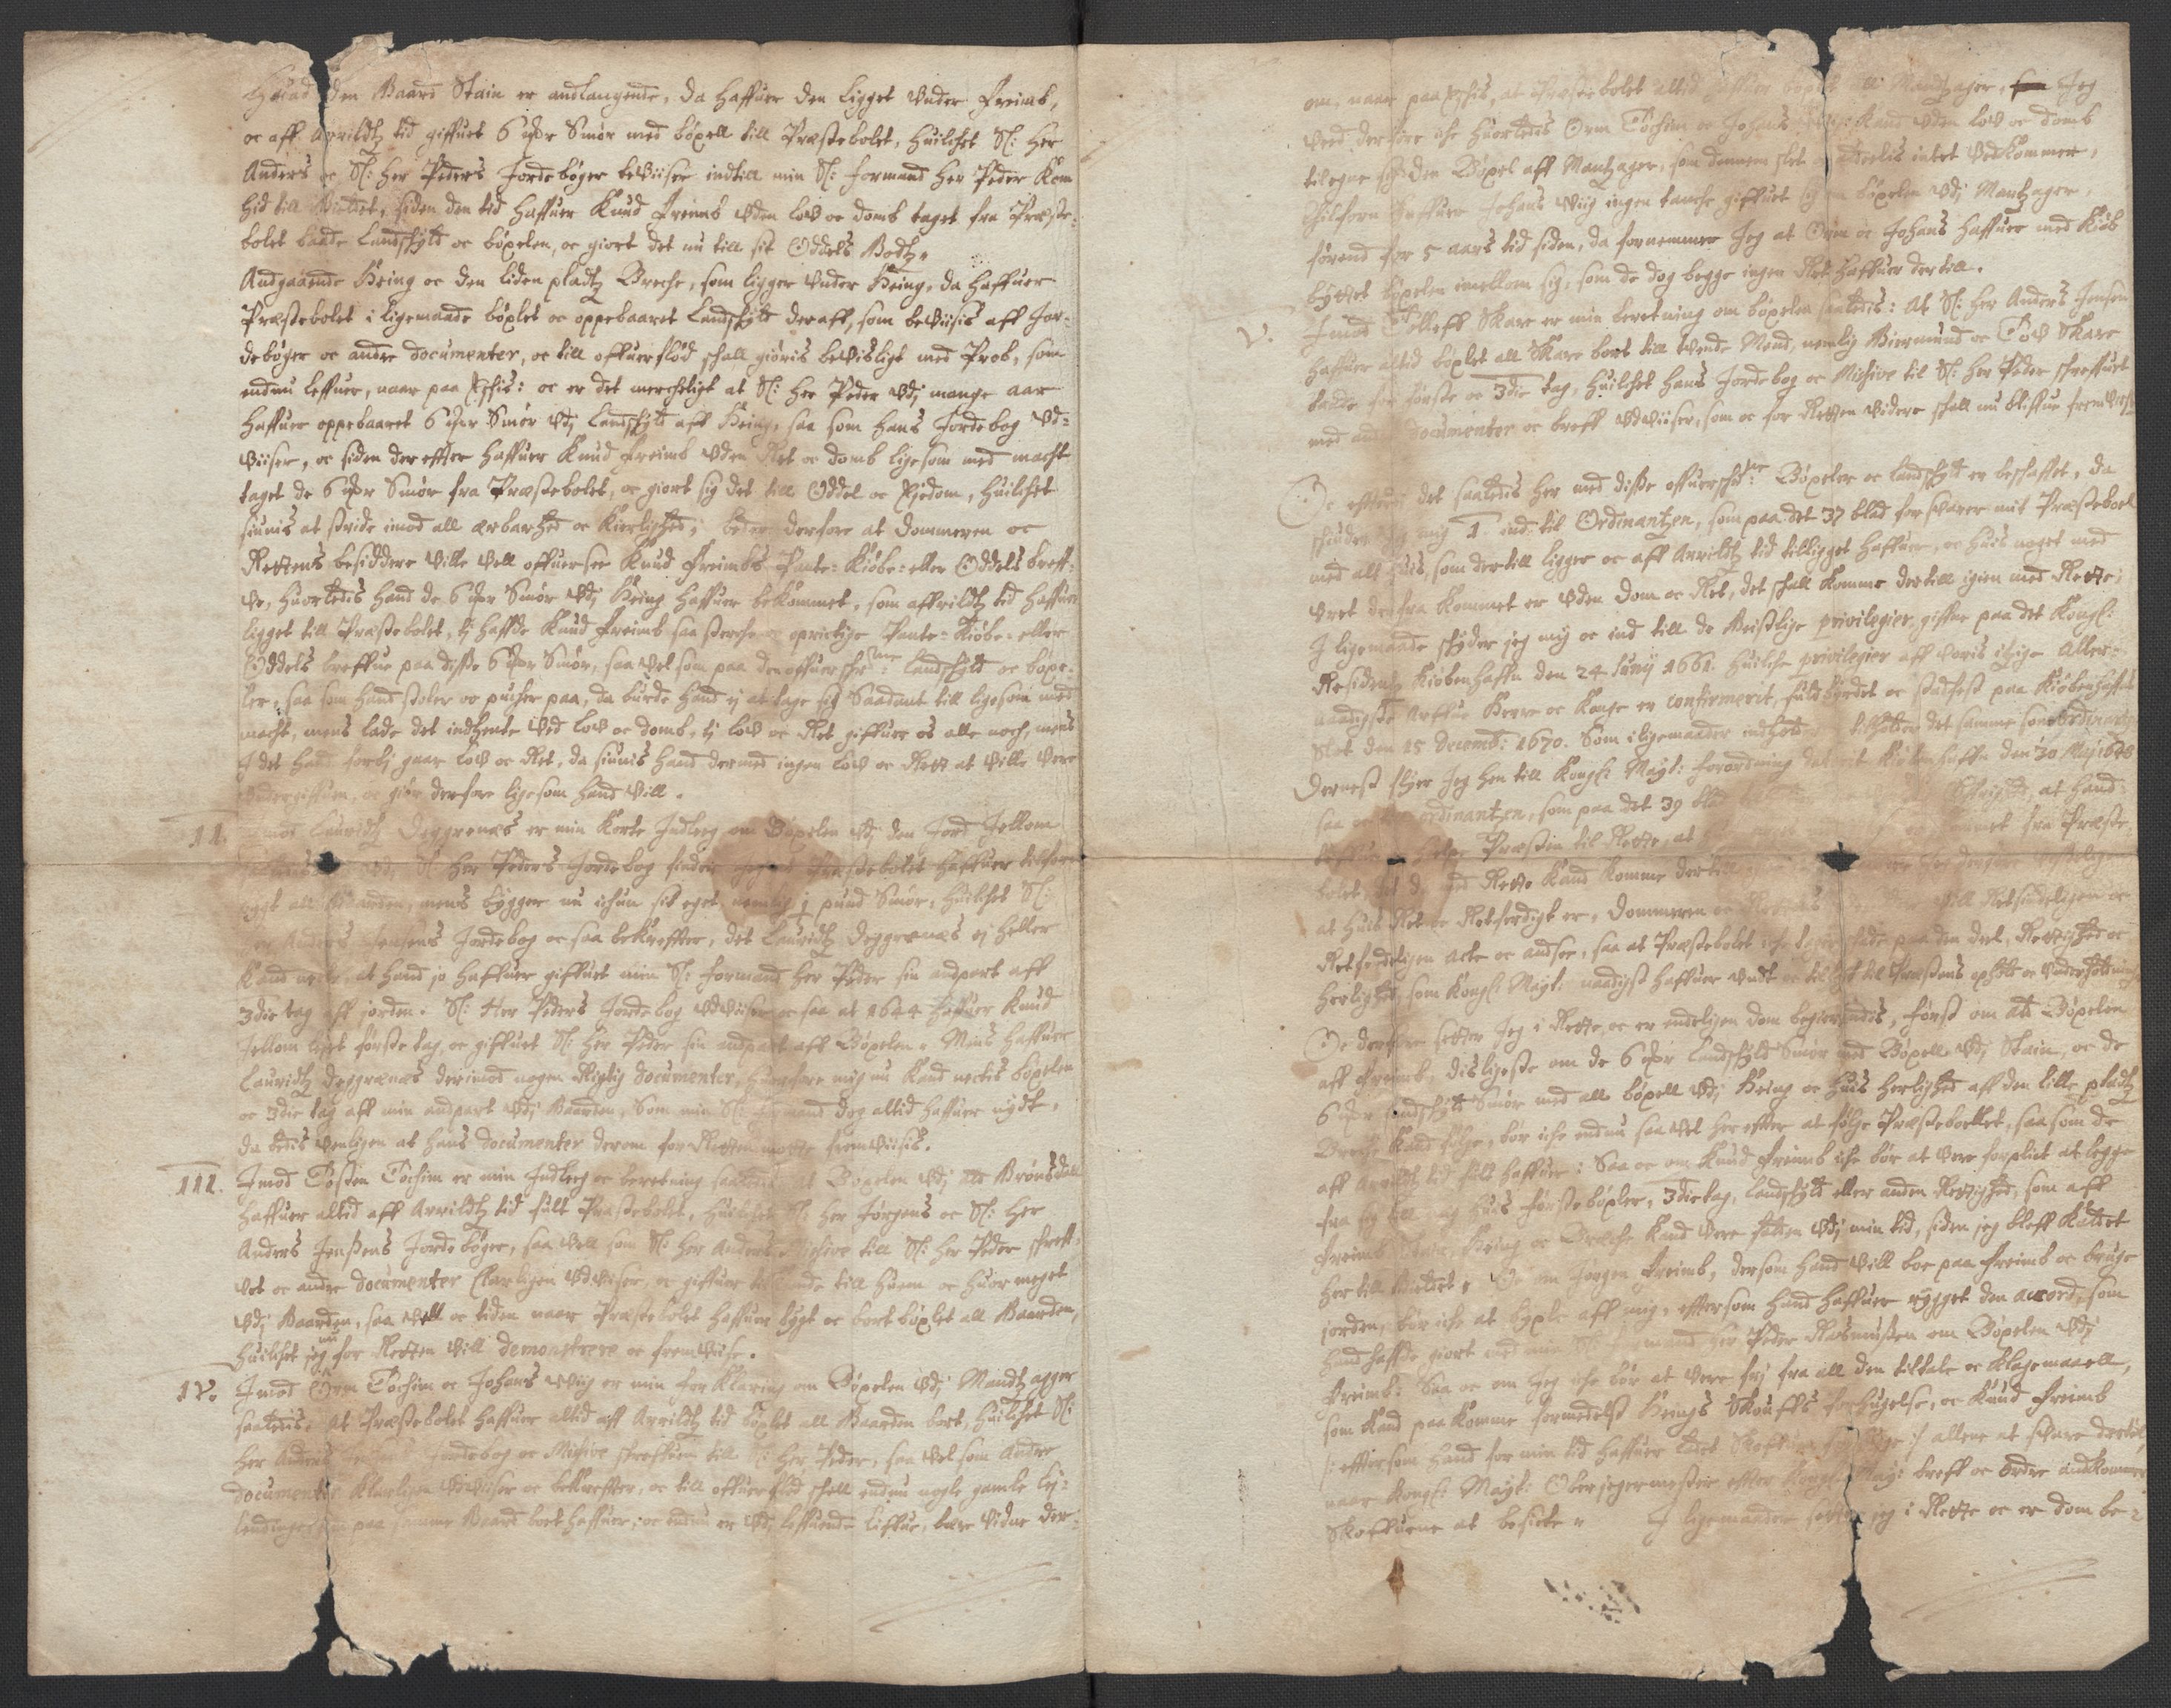 Huad den Gaard Stain er andlangende, da haffuer den ligget under Freimb,
oc aff Arrildtz tid giffuet 6 mr Smør med böxell till Præstebolet, huilchet Sl: Her
Anders oc Sl: Her Peders Jordebøger beviiser indtill min Sl: formand Her Peder kom
hid till Kieldet, siden den tid haffuer Knud Freimb uden low oc domb taget fra Præste-
bolet baade Landschyld oc böxelen, oc giort det nu till sit Oddels Godtz.
Andgaaende Heing oc den liden pladtz Breche, som ligger under Heing, da haffuer
Præstebolet i ligemaade böxlet oc oppebaaret Landschyld deraff, som beviisis aff Jor-
debøger oc andre documenter, oc till offuerflød schall giøris bevisligt med Prob, som
endnu leffuer, naar paa eschis: oc er det mercheligt at Sl: Her Peder udj mange aar
haffuer oppebaaret 6 mr Smør udj Landschyld aff Heing, saa som hans Jordebog ud-
viiser, oc siden dereffter haffuer Knud Freimb uden Ret oc domb ligesom med macht
taget de 6 mr Smør fra Præstebolet, oc giort sig det till Oddel oc Eiedom, huilchet
siunis at stride imod all ærbarhed oc Kierlighed; beder derfore at dommeren oc
Rettens besiddere ville vell offuersee Knud Freimbs Pante- Kiøbe- eller Oddels breff-
ve, huorledis hand de 6 mr Smør udj Heing haffuer bekommet, som aff Arildtz tid haffuer
ligget till Præstebolet, tj haffde Knud Freimb saa sterche oc oprictige Pante- Kiøbe- eller
Oddels breffue paa disse 6 mr Smør, saa vel som paa den offuerschr:ne Landschyld oc böxe-
ler, saa som hand stoler oc pucher paa, da burde hand ej at tage sig Saadant till ligesom med
macht, mens lade det indhente ved low oc domb, tj low oc Ret giffuer os alle noch, mens
I det hand forbj gaar low oc Ret, da siunis hand dermed ingen low oc Rett at ville vere
undergiffuen, oc giør derfore ligesom hand vill.
II. Imod Lauridtz Deggrenæs er min korte Indleg om Böxelen udj den Jord Jellom
udj Sl Her Peders Jordebog findis Præstebolet haffuer tilforn
bygt all Gaarden, mens bygger nu ichun sit eget nemlig j pund Smør, huilchet Sl:
Her Anders Jensens Jordebog oc saa bekreffter, det Lauridtz Deggrenæs ej heller
kand necte, at hand jo haffuer giffuet min Sl: formand Her Peder sin andpart aff
3die tag aff jorden. Sl: Her Peders Jordebog udviiser oc saa at 1644 haffuer Knud
Jellom første tag, oc giffuet Sl: Her Peder sin andpart aff Böxelen. Mens haffuer
Lauridtz Deggrenæs derimod nogen Rigtig documenter, huorfore mig nu kand nectis böxelen
oc 3die tag aff min andpart udj Gaarden, som min Sl: formand dog altid haffuer nydt,
da bedis venligen at hans documenter derom for Retten motte fremviisis.
III. Imod Tosten Tochim er min Indleg oc beretning saaledis at Böxelen udj all Brønsdall
haffuer altid aff Arrildtz tid fult Præstebolet, huilchet Sl: Her Jørgens oc Sl: Her
Anders Jenssens Jordebøger, saa vell som Sl: Her Anders Missive till Sl: Her Peder schreff-
vet oc andre documenter Clarligen udviser, oc giffuer tilkiende till huem oc huor meget
udj Gaarden, saa vell oc tiden naar Præstebolet haffuer bygt oc bort böxlet all Gaarden,
huilchet jeg nu for Retten vill demonstrere oc fremviise.
IV. Imod Orm Tochim oc Johans Wiig er min forklaring om Böxelen udj Mandtzagger
saaledis, at Præstebolet haffuer altid aff Arrildtz tid böxlet all Gaarden bort, huilchet Sl:
Her Anders Jensens Jordebog oc Missive schreffuen till Sl: Her Peder, saa vel som andre
documenter klarligen udviiser oc bekreffter, oc till offuerflød schall endnu nogle gamle ley-
lendinger som paa samme Gaard boet haffuer, oc endnu er udj leffuende liffue, bære vidne der-
om, naar paa eschis, at Præstebolet altid haffuer böxlet all Mandtzager, Jeg
veed derfore iche huorledis Orm Tochim oc Johans Wiig kand uden low oc domb
tilegne sig den Böxel aff Mantzager, som dennem slet oc aldeelis intet vedkommer,
Tilforn haffuer Johans Wiig ingen tanche giffuet sig om böxelen udj Mantzager,
førend for 5 aars tid siden, da fornemmer Jeg at Orm oc Johans haffuer med Kiøb
byttet böxelen imellom sig, som de dog begge ingen Ret haffuer dertill.
V. Imod Tolleff Skare er min beretning om böxelen saaledis: At Sl: Her Anders Jensen
haffuer altid böxlet all Skare bort till tvende Mend, nemlig Giermund oc Tow Skare
baade for første oc 3die tag, huilchet hans Jordebog oc Missive til Sl: Her Peder schreffuet
med andre documenter oc breff udviiser, som oc for Retten videre schall nu bliffue fremvist.
Oc efftterdj det saaledis her med disse offuerschr:ne Böxeler oc landschyld er beschaffet, da
schiuder jeg mig 1 ind til Ordinantzen, som paa det 37 blad forsvarer mit Præsteboel
med alt huis, som dertill ligger oc aff Arrildtz tid tilligget haffuer, oc huis noget med
Uret derfra kommet er uden dom oc Ret, det schall komme dertill igien med Rette;
I ligemaade schyder jeg mig oc ind till de Geistlige privilegier, giffne paa det Kongl:
Residentz Kiøbenhaffn den 24 Junij 1661. huilche privilegier aff voris itzige Aller-
naadigste Arffue Herre oc Konge er confirmerit, fuldbyrdet oc stadfest paa Kiøbenhaffns
Slot den 15 Decemb: 1670. Som i ligemaader indholder oc tilholder det samme som Ordinantzen
Dernest schyer Jeg hen till Kongl: Mayt: forordning daterit Kiøbenhaffn den 30 Maj 1678
saa oc ordinantzen, som paa det 39 blad at hand
Præsten til Rette, at kommet fra Præste-
bolet, at det med Rette kand komme dertill
at huis Ret oc Retferdigt er, dommeren oc Rettens vill Retsindeligen oc
Retferdeligen acte oc andsee, saa at Præstebolet iche schade paa den deel, Rettighed oc
Herlighed, som Kongl: Mayt: naadigst haffuer undt oc tillagt til Præstens ophold oc underholdning
Oc derfore setter Jeg i Rette, oc er endeligen dom begierendis, først om all Böxelen
aff Freimb, disligeste om de 6 mr Landschyld Smør med Böxell udj Stain, oc de
6 mr Landschyld Smør med all böxell udj Heing oc huis herlighed aff den lille pladtz
Breche kand følge, bør iche endnu saa vel hereffter at følge Præstebolet, saa som de
aff Arrildtz tid fult haffuer: Saa oc om Knud Freimb iche bør at vere forplict at legge
fra sig till mig huis første böxler, 3die tag, landschyld eller anden Rettighed, som aff
Freimb, Stain, Heing oc Breche kand vere falden udj min tid, siden jeg bleff kaldet
her till Kieldet. Oc om Jørgen Freimb, dersom hand vill boe paa Freimb oc bruge
jorden, bør iche at byxle aff mig, efftersom hand haffuer rygget den accord, som
hand haffde giort med min Sl: formand Her Peder Rasmussen om Böxelen udj
Freimb: Saa oc om jeg iche bør at vere fry fra all den tiltale oc klagemaaell,
som kand paakomme formedelst Heings Skouffs forhugelse, oc Knud Freimb
/: efftersom hand for min tid haffuer ladet Skoffuen :/ allene at svare dertil,
naar Kongl: Mayt: Oberjegermester effter Kongl: Mayt: breff oc Ordre andkommer
Skoffuene at besicte. I ligemaader setter jeg i Rette oc er dom be-